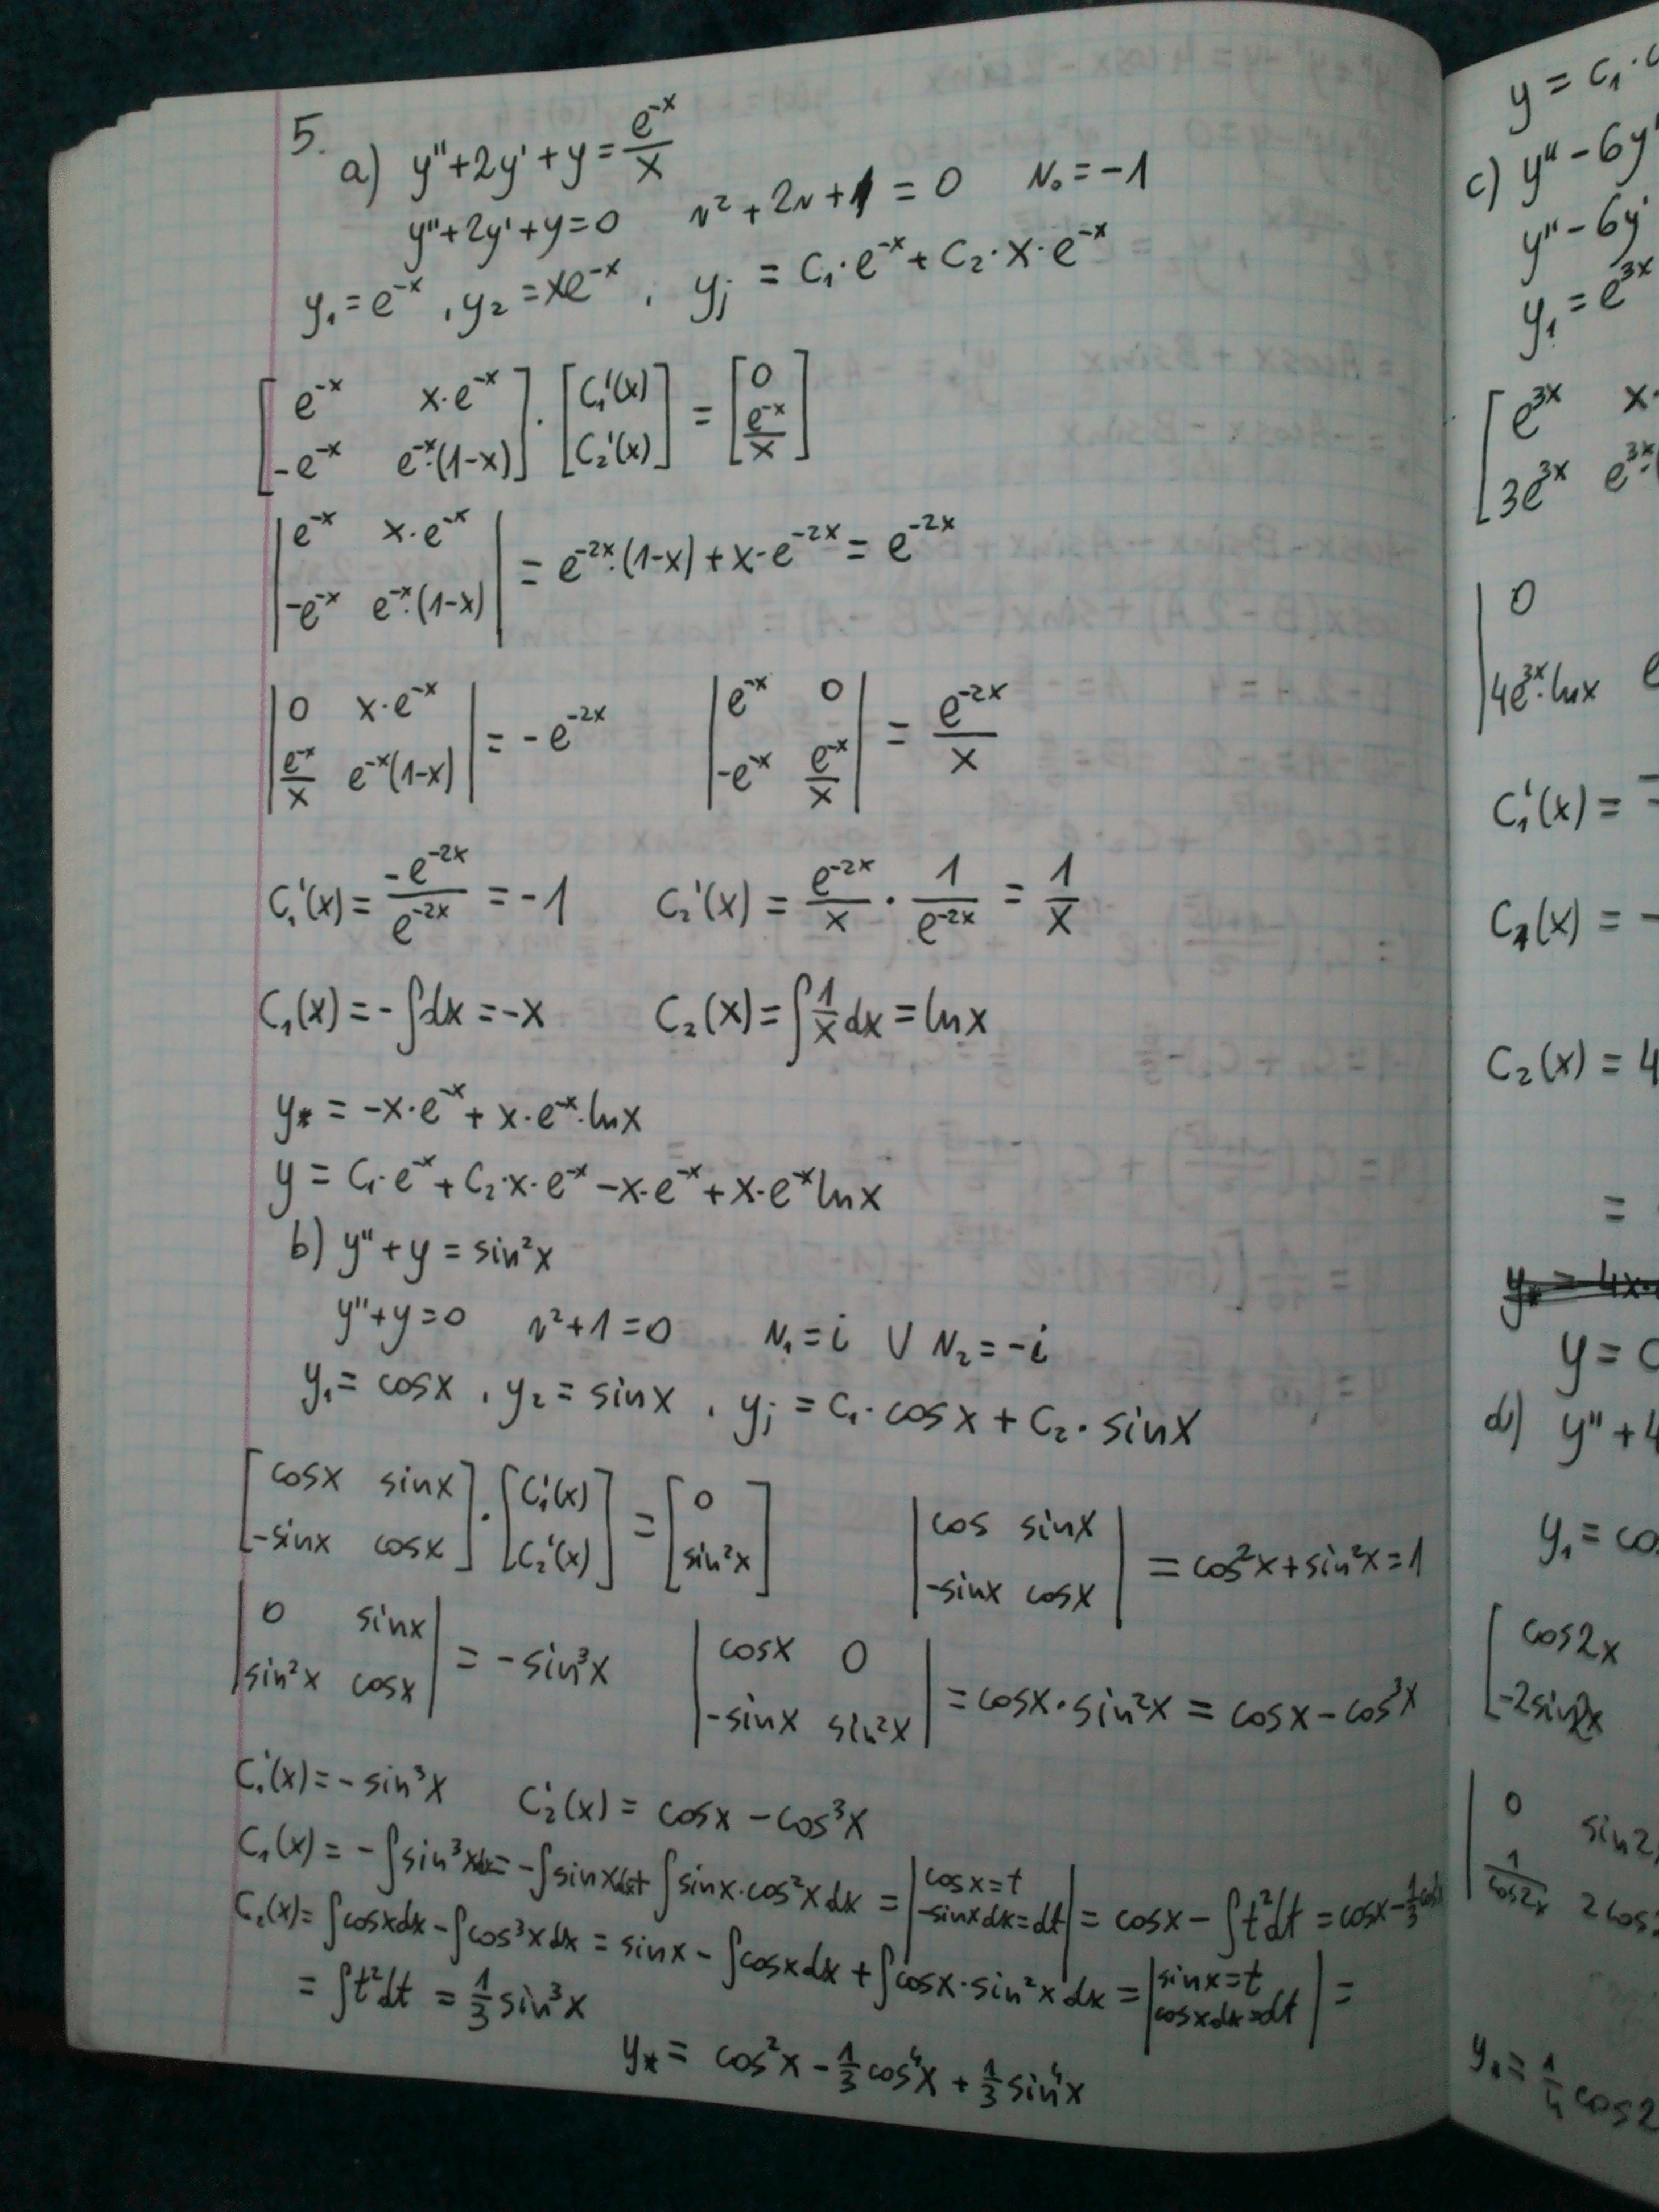 5.
a) y''+2y'+y = e^{-x}/x
y''+2y'+y=0 r²+2r+1=0 r₀=-1
y₁=e^{-x}, y₂=xe^{-x}, yj = C₁·e^{-x}+C₂·x·e^{-x}
[e^{-x} x·e^{-x}; -e^{-x} e^{-x}·(1-x)]·[C₁'(x); C₂'(x)] = [0; e^{-x}/x]
|e^{-x} x·e^{-x}; -e^{-x} e^{-x}·(1-x)| = e^{-2x}·(1-x)+x·e^{-2x} = e^{-2x}
|0 x·e^{-x}; e^{-x}/x e^{-x}(1-x)| = -e^{-2x} |e^{-x} 0; -e^{-x} e^{-x}/x| = e^{-2x}/x
C₁'(x) = -e^{-2x}/e^{-2x} = -1 C₂'(x) = e^{-2x}/x · 1/e^{-2x} = 1/x
C₁(x) = -∫dx = -x C₂(x) = ∫1/x dx = ln x
y* = -x·e^{-x}+x·e^{-x}·lnx
y = C₁·e^{-x}+C₂·x·e^{-x}-x·e^{-x}+x·e^{-x}lnx
b) y''+y = sin²x
y''+y=0 r²+1=0 r₁=i ∨ r₂=-i
y₁=cosx, y₂=sinx, yj = C₁·cosx+C₂·sinx
[cosx sinx; -sinx cosx]·[C₁'(x); C₂'(x)] = [0; sin²x] |cos sinx; -sinx cosx| = cos²x+sin²x=1
|0 sinx; sin²x cosx| = -sin³x |cosx 0; -sinx sin²x| = cosx·sin²x = cosx-cos³x
C₁'(x) = -sin³x C₂'(x) = cosx-cos³x
C₁(x) = -∫sin³xdx = -∫sinxdx+∫sinx·cos²xdx = |cosx=t; -sinxdx=dt| = cosx-∫t²dt = cosx-1/3cos³x
C₂(x) = ∫cosxdx-∫cos³xdx = sinx-∫cosxdx+∫cosx·sin²xdx = |sinx=t; cosxdx=dt| =
= ∫t²dt = 1/3 sin³x
y* = cos²x-1/3cos⁴x+1/3sin⁴x
y = C₁·
c) y''-6y'
y''-6y'
y₁=e^{3x}
[e^{3x} x·
3e^{3x} e^{3x}·
|0
4e^{3x}·lnx
C₁'(x) =
C₁(x) = -
C₂(x) = 4
=
y* = 4x·
y =
d) y''+4
y₁=cos
[cos2x
-2sin2x
|0 sin2
1/cos2x 2cos
y* = 1/4 cos2